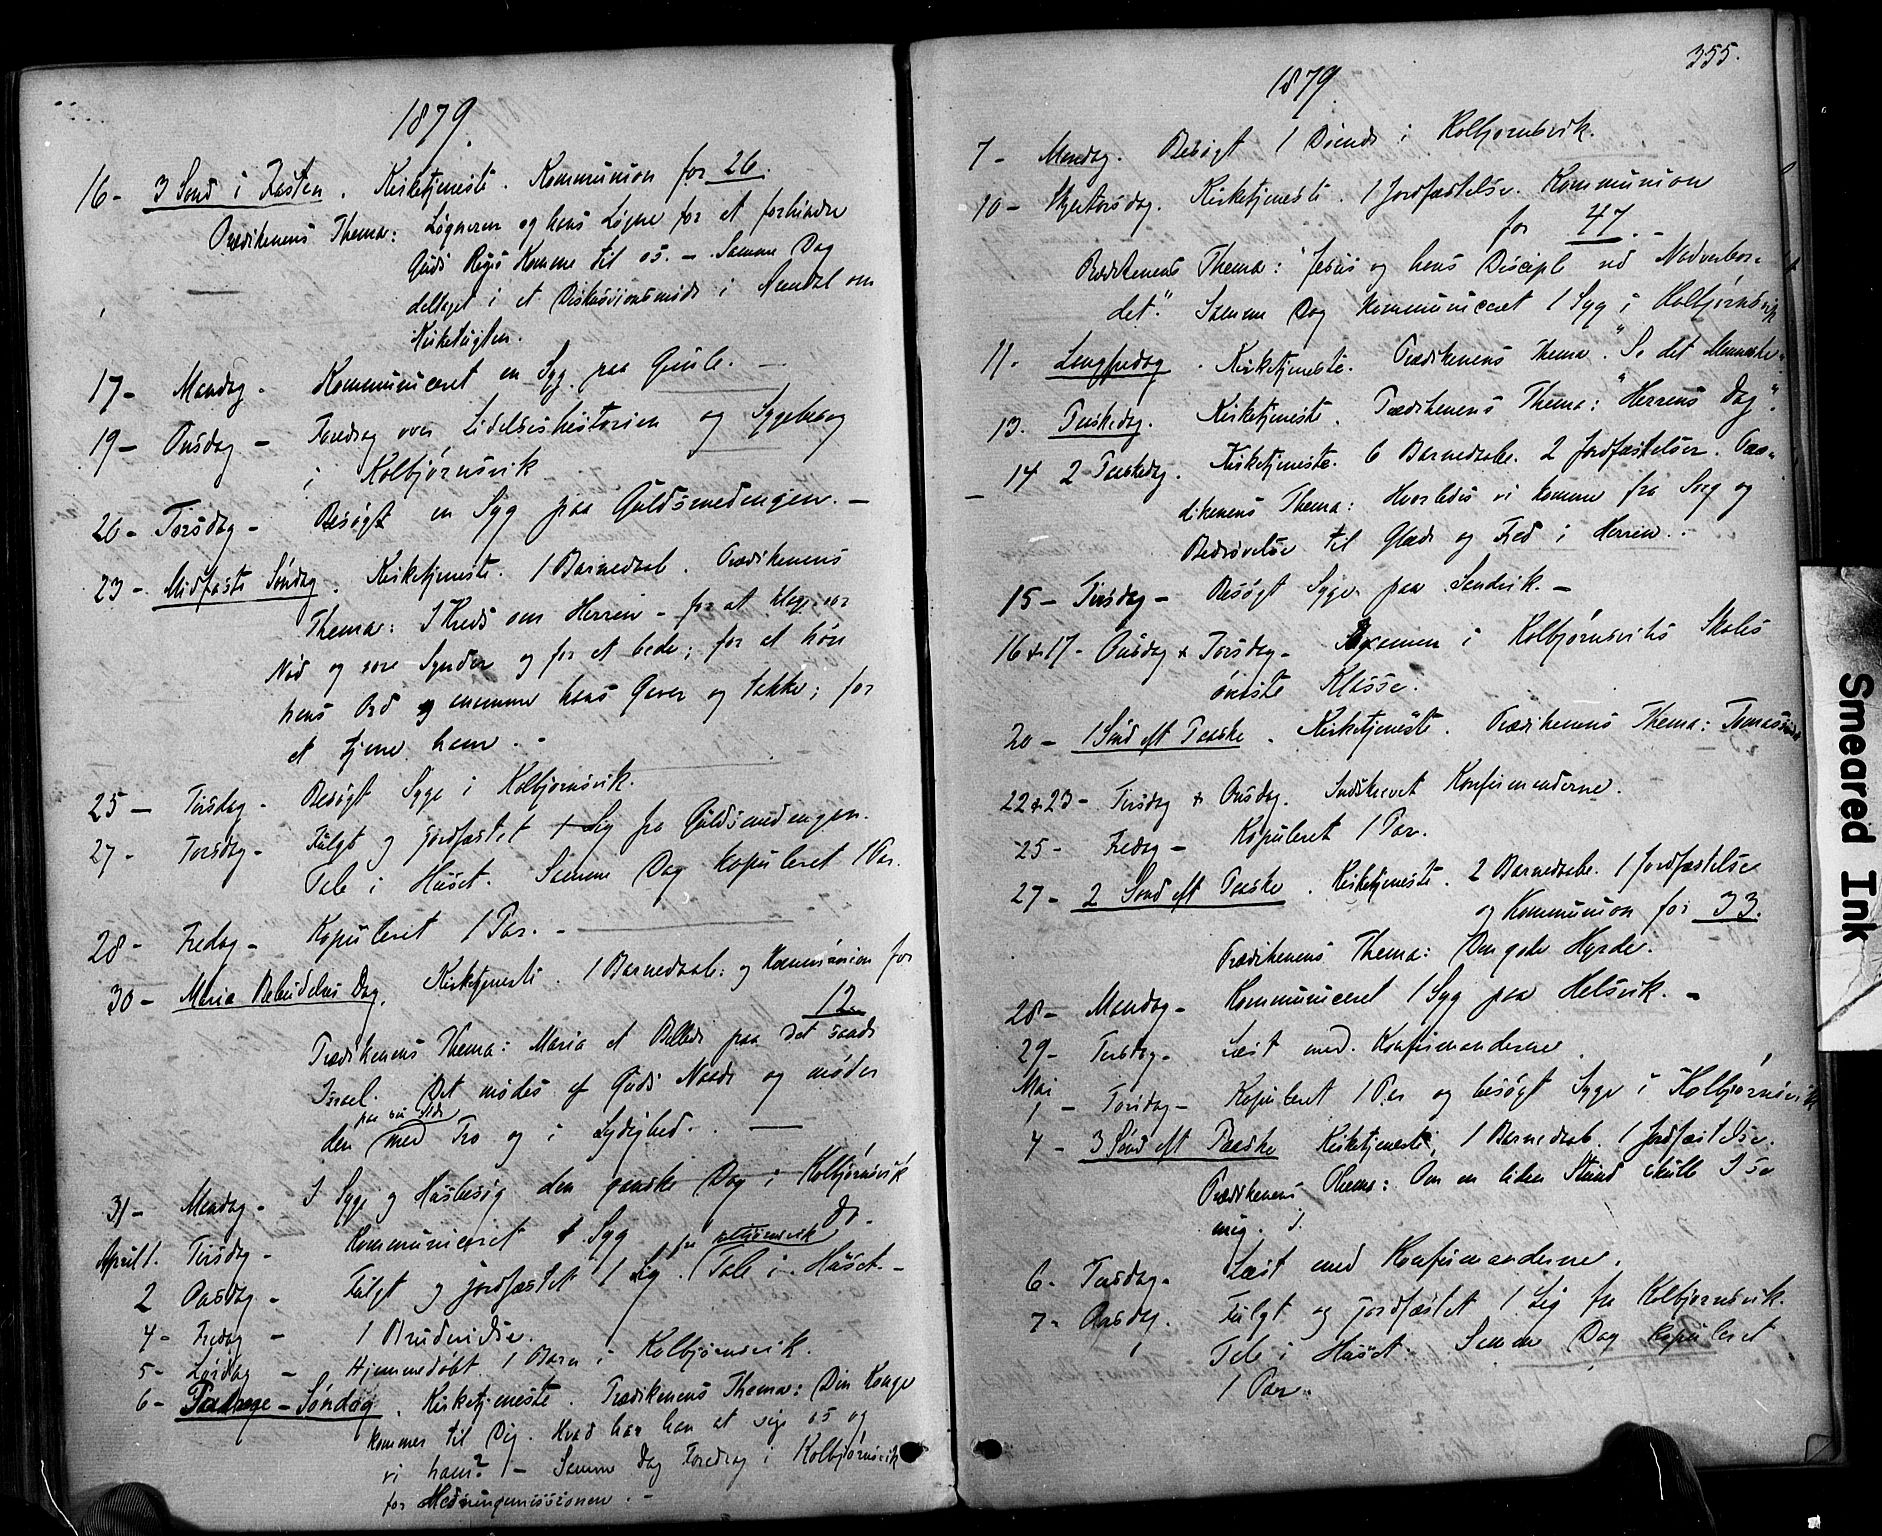 1879
16 - 3 Sønd i Fasten. Kirketjeneste. Kommunion for 26.
Prædikenens Thema: Løgneren og hans Løgne for at forhindre
Guds Riges Komme til os. - Samme Dag
deltaget i et Diskussionsmøde i Arendal om
Kirketugten.
17 - Mandag - Kommuniceret en Syg paa Gimle. -
19 - Onsdag - Foredrag over Lidelseshistorien og Sygebesøg
i Kolbjørnsvik
20 - Torsdag - Besøgt en Syg paa Guldsmedengen. -
23 - Midfaste Søndag. Kirketjeneste. 1 Barnedaab. Prædikenens
Thema: I Kreds om Herren - for at klage vor
Nød og vore Synder og for at bede; for at høre
hans Ord og annamme hans Gaver og takke; for
at tjene ham. -
25 - Tirsdag - Besøgt Syge i Kolbjørnsvik.
27 - Torsdag - Fulgt og jordfæstet 1 Lig fra Guldsmedengen.
Tale i Huset. Samme Dag kopuleret 1 Par.
28 - Fredag - Kopuleret 1 Par. -
30 - Maria Bebudelses Dag. Kirketjeneste. 1 Barnedaab: og Kommunion for
12
Prædikenens Thema: Maria et Billede paa det sande
Israel. Det mødes af Guds Naade og møder
paa sin Side
den med Tro og i Lydighed. . -
31 - Mandag - I Syge og Husbesøg den ganske Dag i Kolbjørnsvik
April 1. Tirsdag - Kommuniceret 1 Syg do -
fra Kolbjørnsvik
2 Onsdag - Fulgt og jordfæstet 1 Lig. (Tale i Huset. -
4 - Fredag - 1 Brudevielse.
5 - Lørdag - Hjemmedøbt 1 Barn i Kolbjørnsvik.
6 - Palme - Søndag. Kirketjeneste. Prædikenens Thema: Din Konge
kommer til Dig. Hvad har han at sige os og
vi ham? - Samme Dag Foredrag i Kolbjørnsvik
for Hedningemissionen. -
355.
1879
7 - Mandag. Besøgt 1 Døende i Kolbjørnsvik.
10 - Skjærtorsdag. Kirketjeneste. 1 Jordfæstelse. Kommunion
for 47. -
Prædikenens Thema: "Jesus og hans Disciple ved Nadverbor-
det". Samme Dag kommuniceret 1 Syg i Kolbjørnsvik
11. Langfredag. Kirketjeneste. Prædikenens Thema "Se det Menneske".
13. Paaskedag. Kirketjeneste. Prædikenens Thema: "Herrens Dag".
- 14 2 Paaskedag. Kirketjeneste. 6 Barnedaabe. 2 Jordfæstelser. Præ-
dikenens Thema: Hvorledes vi komme fra Sorg og
Bedrøvelse til Glæde og Fred i Herren. -
15 - Tirsdag - Besøgt Syge paa Sandvik. -
16 & 17 - Onsdag & Torsdag - Examen i Kolbjørnsviks Skoles
øverste Klasse.
20 - 1 Sønd eft Paaske. Kirketjeneste. Prædikenens Thema:
22 & 23 - Tirsdag & Onsdag. Indskrevet Konfirmanderne.
25 - Fredag - Kopuleret 1 Par.
27 - 2 Sønd eft Paaske. Kirketjeneste. 2 Barnedaabe. 1 Jordfæstelse
og Kommunion for 33.
Prædikenens Thema: Den gode Hyrde.
28 - Mandag - Kommuniceret 1 Syg paa Helsvik. -
29 - Tirsdag - Læst med Konfirmanderne.
Mai
1 - Torsdag - Kopuleret 1 Par og besøgt Syge i Kolbjørnsvik
4 - 3 Sønd eft Paaske Kirketjeneste, 1 Barnedaab. 1 Jordfæstelse.
Prædikenens Thema: Om en liden Stund skulle I se
mig.
6 - Tirsdag - Læst med Konfirmanderne.
7 - Onsdag. Fulgt og jordfæstet 1 Lig fra Kolbjørnsvik.
Tale i Huset. Samme Dag kopuleret
1 Par.
Smeared Ink